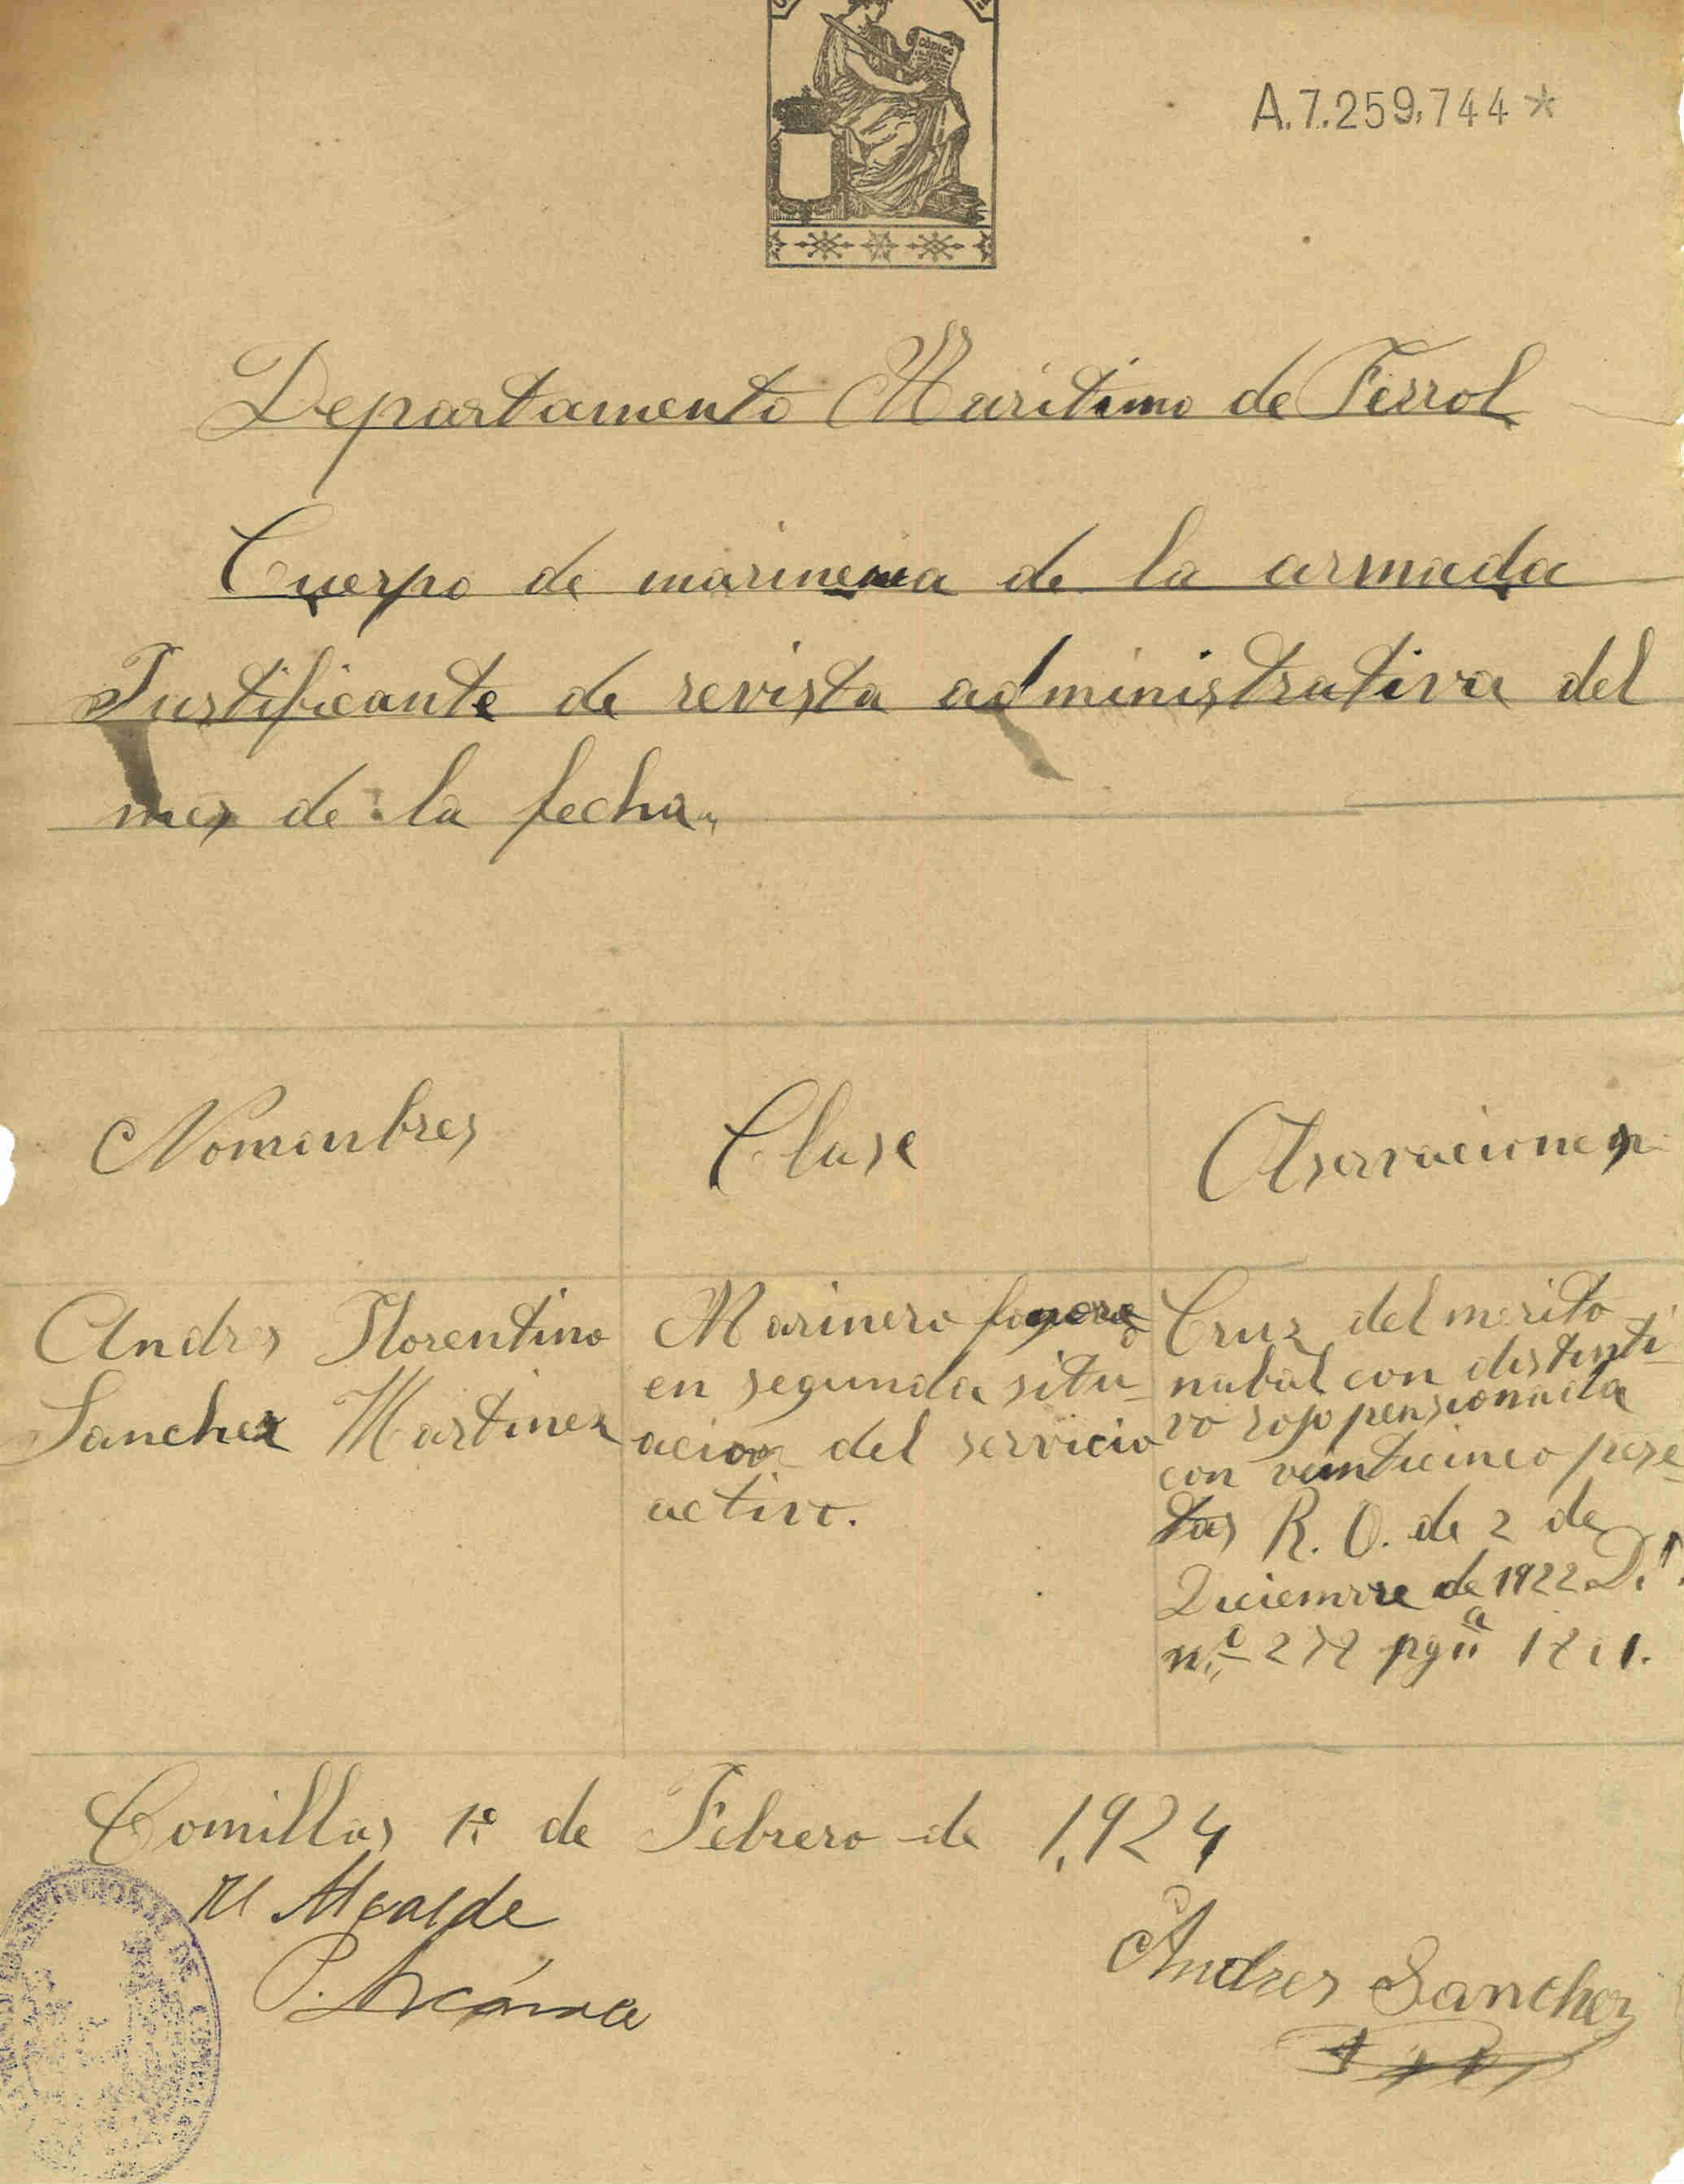 CODIGO
A.7.259.744*
Departamento Maritimo de Ferrol
Cuerpo de marineria de la armada
Justificante de revista administrativa del
mes de la fecha.
Nomenbres
Clase
Observaciones
Andres Florentino
Sanchez Martinez
Marinero fogonero
en segunda situ-
acion del servicio
activo.
Cruz del merito
nabal con distinti-
vo rojo pensionada
con veinticinco pese-
tas R. O. de 2 de
Diciembre de 1922 D.
n.º 272 pgª
Comillas 1º de Febrero de 1.924
El Alcalde
Andres Sanchez
CONSTITUCIONAL DE